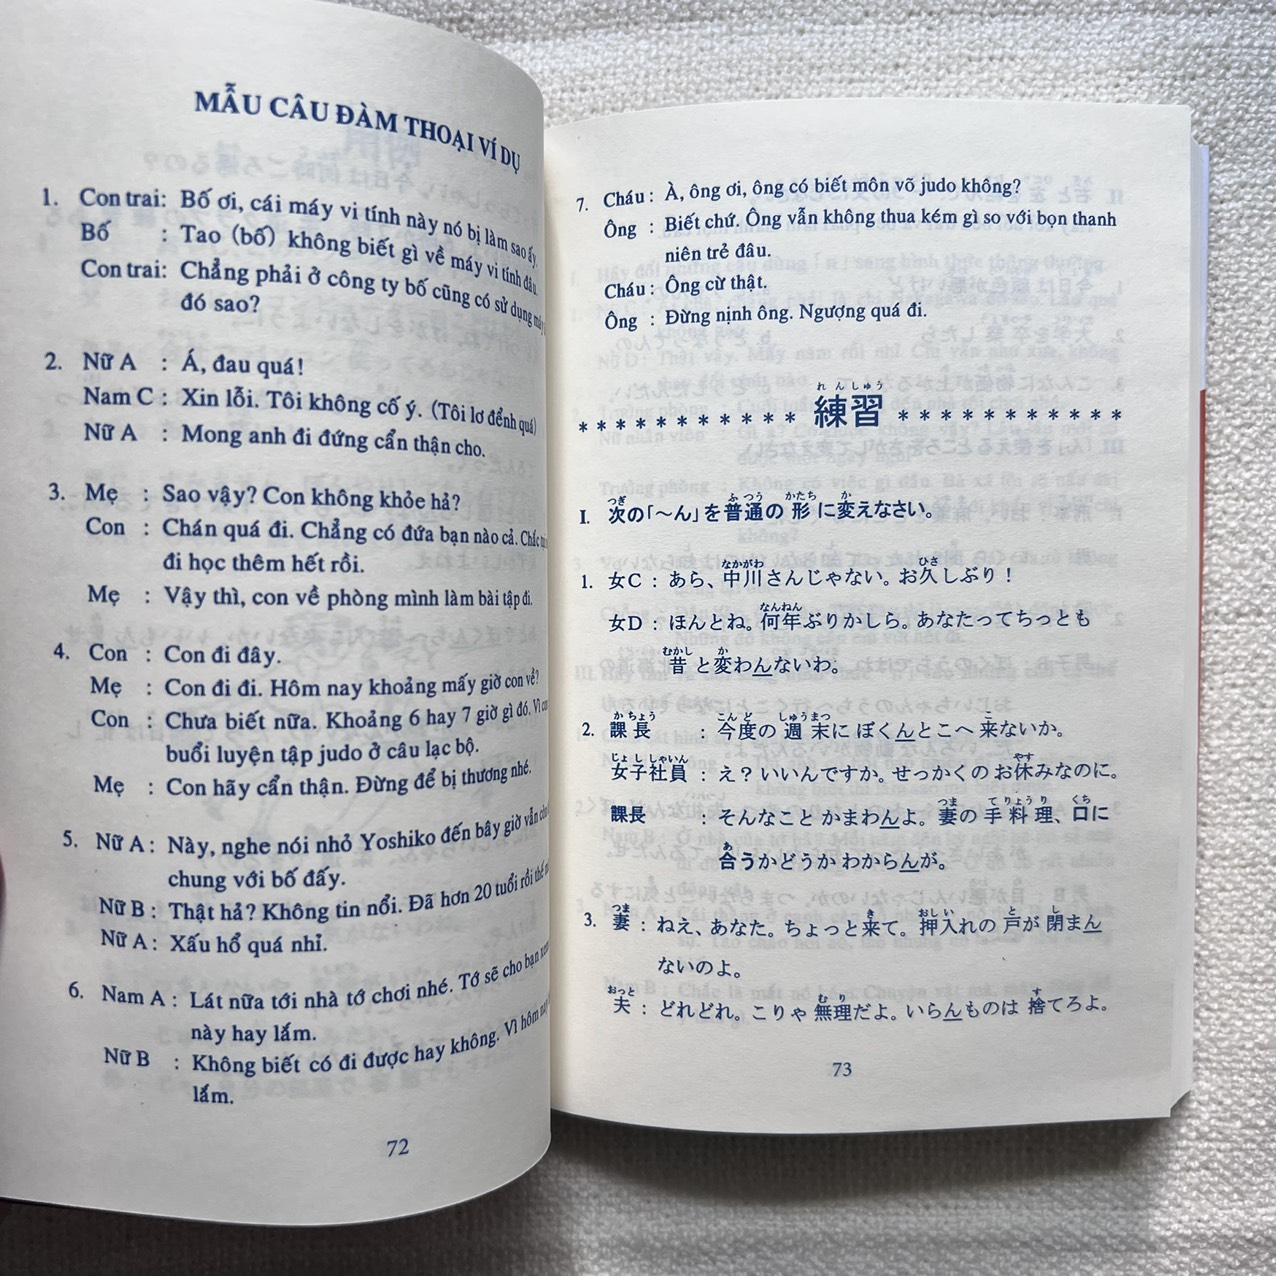 MẪU CÂU ĐÀM THOẠI VÍ DỤ
1. Con trai: Bố ơi, cái máy vi tính này nó bị làm sao ấy.
Bố : Tao (bố) không biết gì về máy vi tính đâu.
Con trai: Chẳng phải ở công ty bố cũng có sử dụng
đó sao?
2. Nữ A : Á, đau quá!
Nam C : Xin lỗi. Tôi không cố ý. (Tôi lơ đểnh quá)
Nữ A : Mong anh đi đứng cẩn thận cho.
3. Mẹ : Sao vậy? Con không khỏe hả?
Con : Chán quá đi. Chẳng có đứa bạn nào cả. Chắc
đi học thêm hết rồi.
Mẹ : Vậy thì, con về phòng mình làm bài tập đi.
4. Con : Con đi đây.
Mẹ : Con đi đi. Hôm nay khoảng mấy giờ con về?
Con : Chưa biết nữa. Khoảng 6 hay 7 giờ gì đó. Vì
buổi luyện tập judo ở câu lạc bộ.
Mẹ : Con hãy cẩn thận. Đừng để bị thương nhé.
5. Nữ A : Này, nghe nói nhỏ Yoshiko đến bây giờ vẫn
chung với bố đấy.
Nữ B : Thật hả? Không tin nổi. Đã hơn 20 tuổi rồi thế
Nữ A : Xấu hổ quá nhỉ.
6. Nam A : Lát nữa tới nhà tớ chơi nhé. Tớ sẽ cho bạn
này hay lắm.
Nữ B : Không biết có đi được hay không. Vì hôm
lắm.
72
7. Cháu : À, ông ơi, ông có biết môn võ judo không?
Ông : Biết chứ. Ông vẫn không thua kém gì so với bọn thanh
niên trẻ đâu.
Cháu : Ông cừ thật.
Ông : Đừng nịnh ông. Ngượng quá đi.
れんしゅう
* * * * * * * * * * * 練習 * * * * * * * * * * *
つぎ ふつう かたち か
I. 次の「～ん」を普通の形に変えなさい。
なかがわ ひさ
1. 女C : あら、中川さんじゃない。お久しぶり！
なんねん
女D : ほんとね。何年ぶりかしら。あなたってちっとも
むかし か
昔と変わんないわ。
かちょう こんど しゅうまつ こ
2. 課長 : 今度の週末にぼくんとこへ来ないか。
じょししゃいん やす
女子社員 : え？いいんですか。せっかくのお休みなのに。
つま てりょうり くち
課長 : そんなことかまわんよ。妻の手料理、口に
あ
合うかどうかわからんが。
つま き おしい と し
3. 妻 : ねえ、あなた。ちょっと来て。押入れの戸が閉まん
ないのよ。
おっと むり す
夫 : どれどれ。こりゃ無理だよ。いらんものは捨てろよ。
73